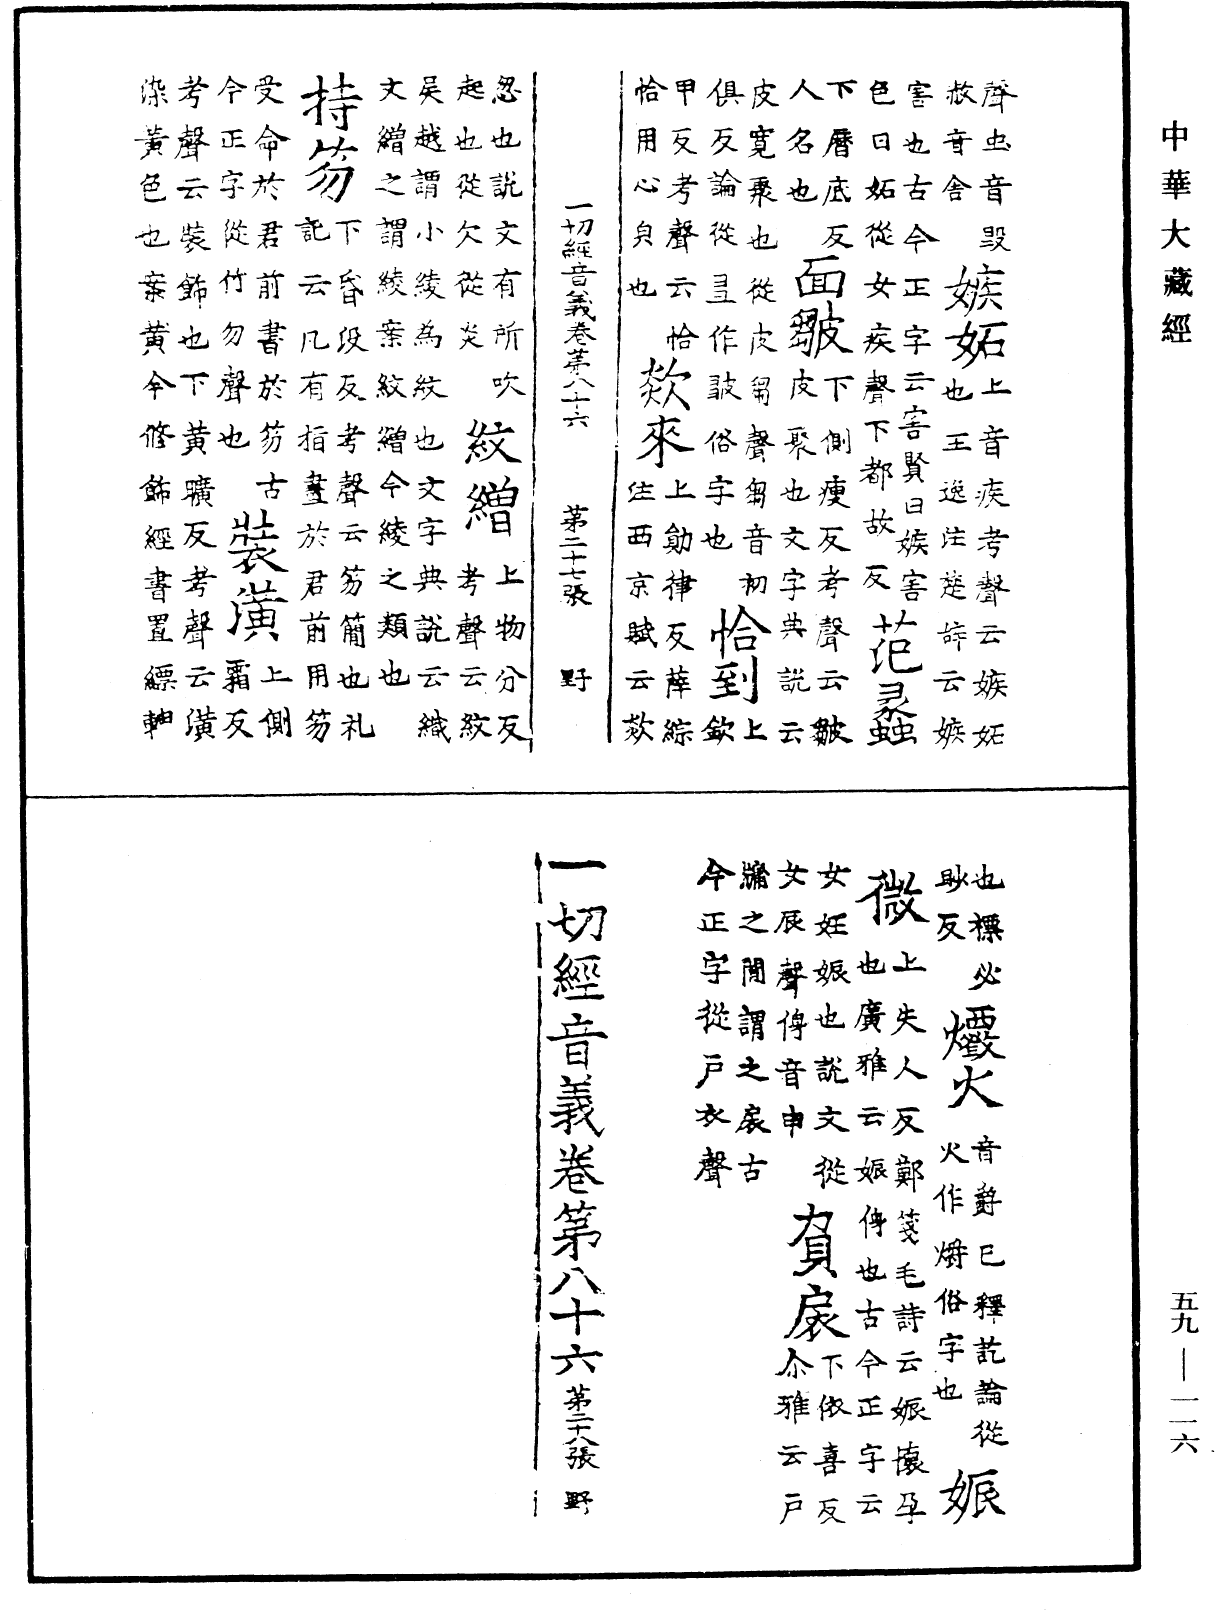 中華大藏經
聲虫音毀
嫉妬上音疾考聲云嫉妬
故音舍
也王逸注楚辝云嫉
害也古今正字云害賢曰嫉害
色曰妬從女疾聲下都故反
范蠡
下曆底反
人名也
面皺下側瘦反考聲云皺
皮聚也文字典說云
皮寬聚也從皮芻聲芻音初
俱反論從㕛作皷俗字也
恰到上
欽
甲反考聲云恰
恰用心皃也
欻來上勛律反薛綜
注西京賦云欻
一切經音義卷苐八十六 第二十七張 野
忽也說文有所吹
起也從欠從炎
紋繒上物分反
考聲云紋
吳越謂小綾為紋也文字典說云織
文繒之謂綾案紋繒今綾之類也
持笏下昏段反考聲云笏簡也礼
記云凡有指畫於君前用笏
受命於君前書於笏古
今正字從竹勿聲也
裝潢上側
霜反
考聲云裝飾也下黃曠反考聲云潢
染黃色也案黃今修飾經書置縹軸
也褾必
眇反
爝火音爵已釋訖論從
火作爝俗字也
娠
微上失人反鄭箋毛詩云娠懷孕
也廣雅云娠傅也古今正字云
女妊娠也說文從
女辰聲傅音申
負扆下依喜反
尒雅云戶
牖之間謂之扆古
今正字從戶衣聲
一切經音義卷第八十六 第二十八張 野
五九—一一六